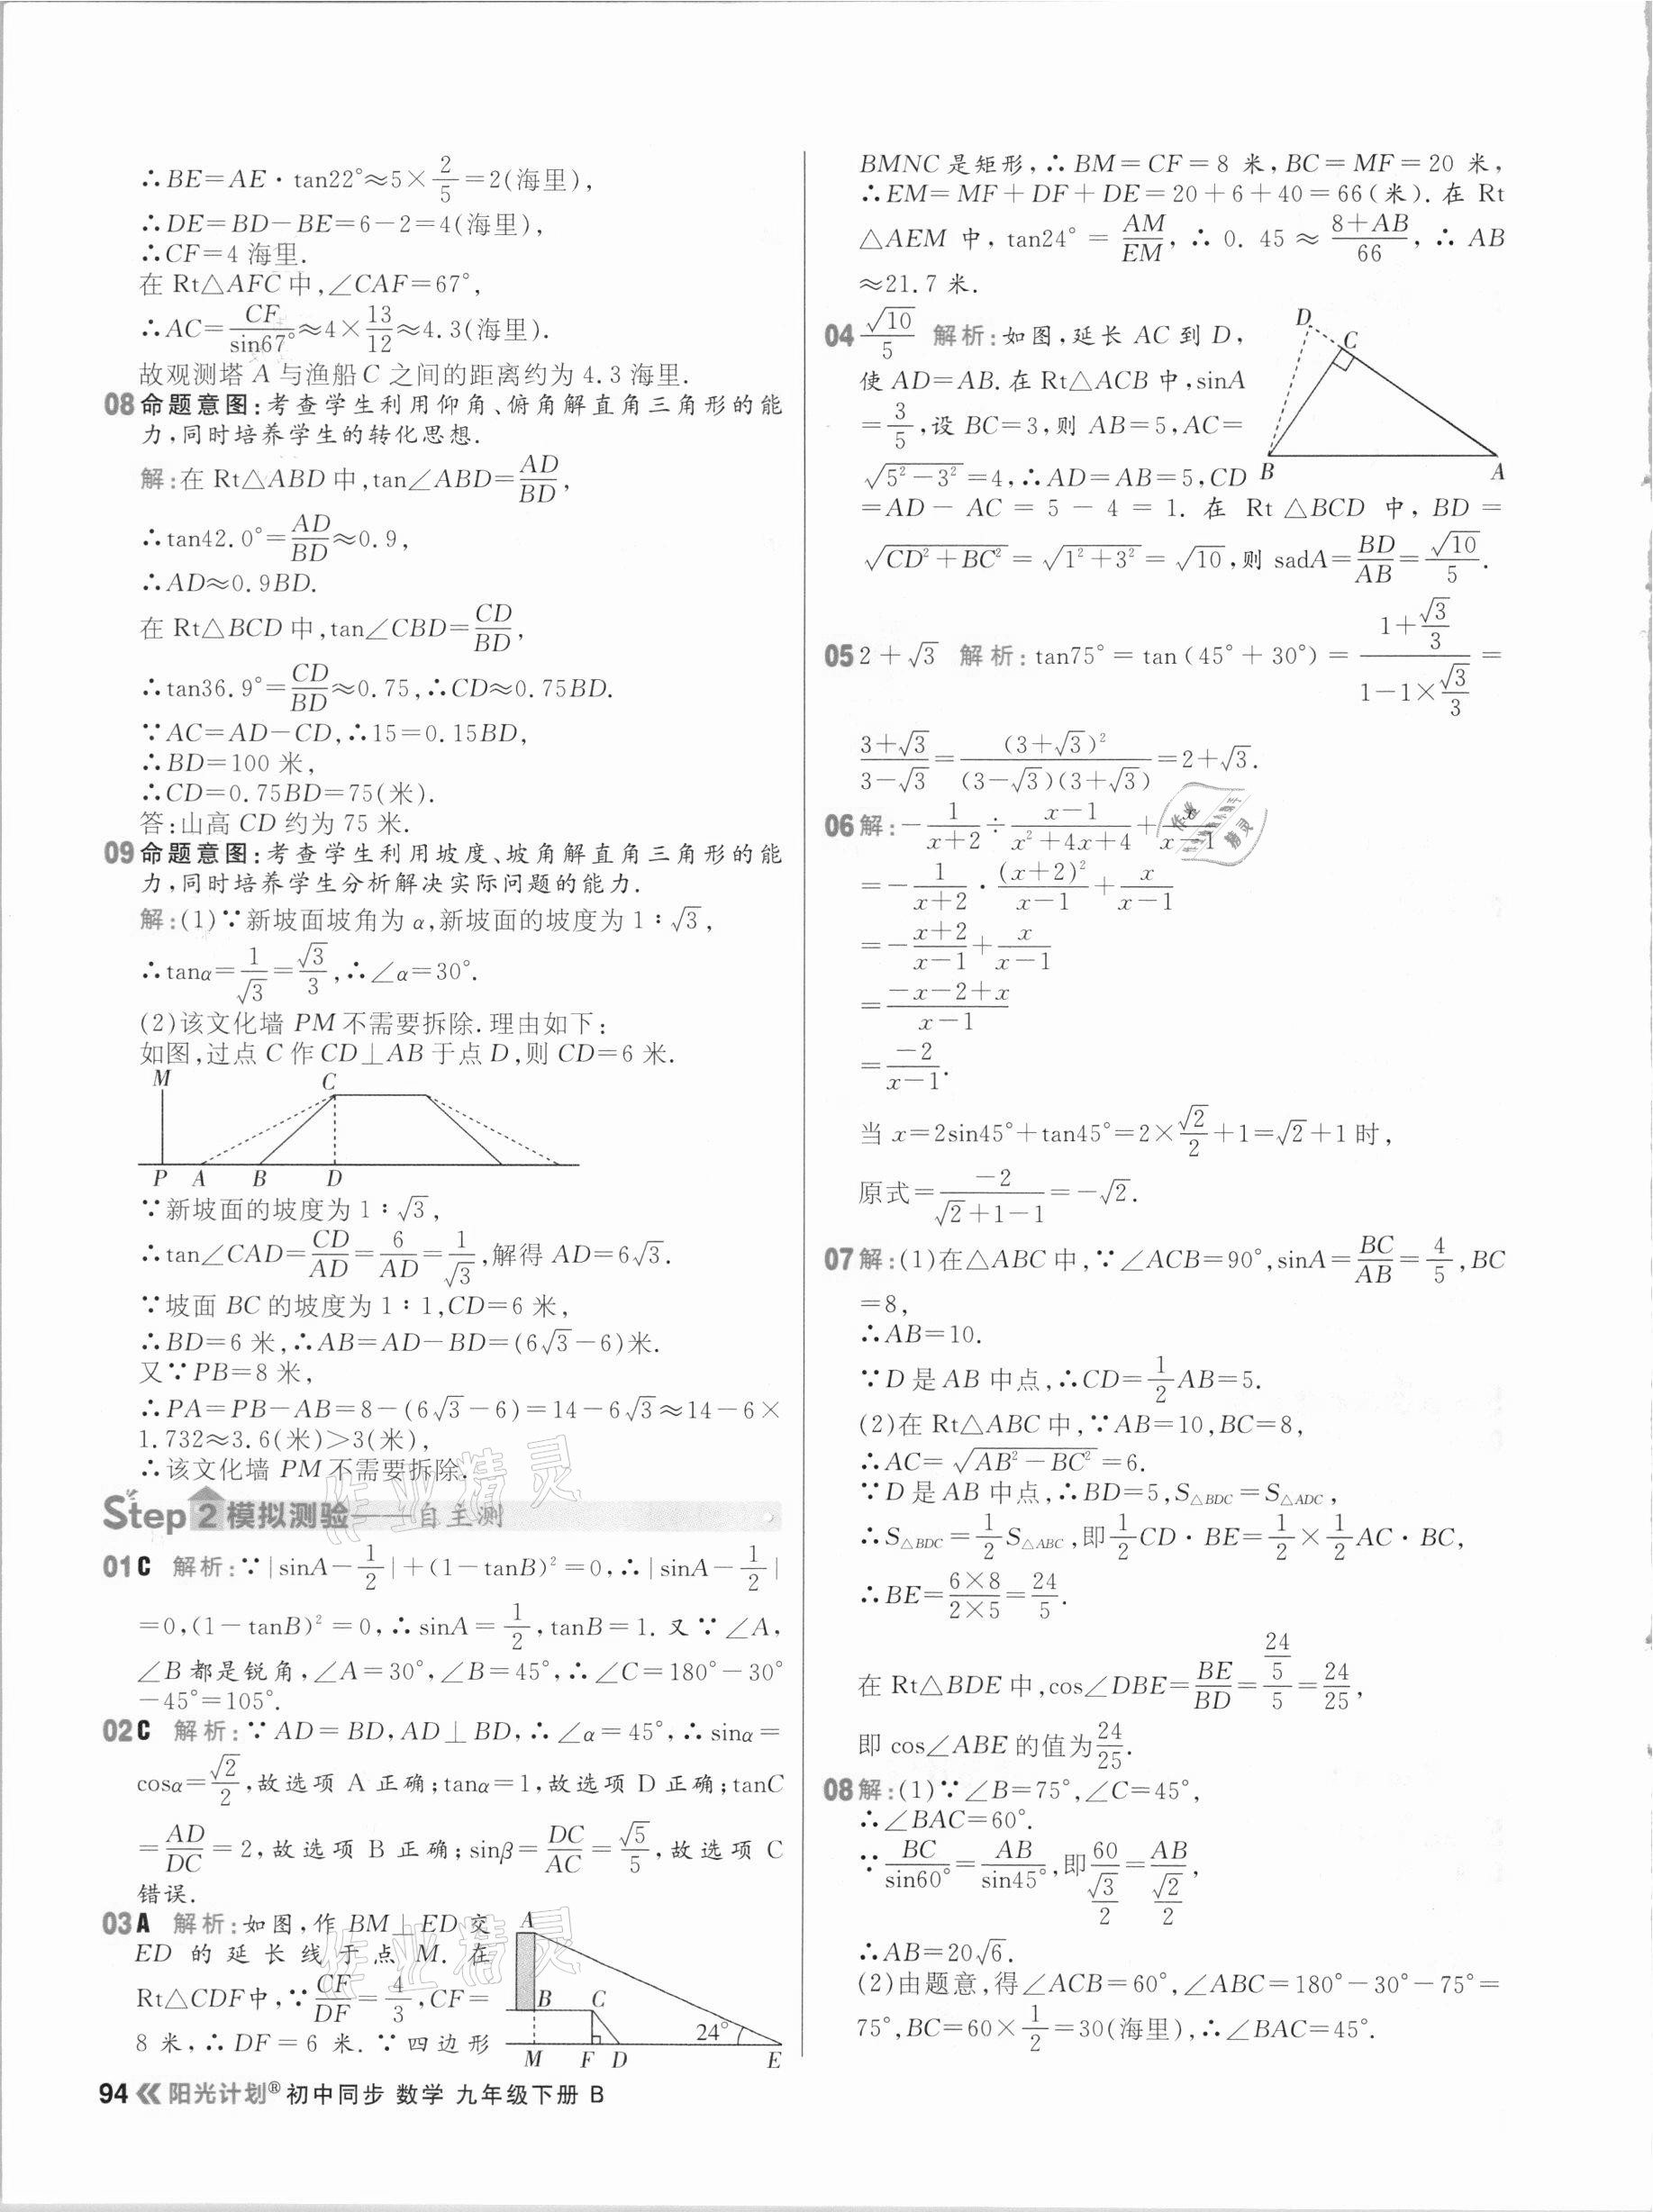 ∴BE=AE·tan22°≈5×2/5=2(海里),
∴DE=BD-BE=6-2=4(海里),
∴CF=4 海里.
在 Rt△AFC 中,∠CAF=67°,
∴AC=CF/sin67°≈4×13/12≈4.3(海里).
故观测塔 A 与渔船 C 之间的距离约为 4.3 海里.
08 命题意图:考查学生利用仰角、俯角解直角三角形的能
力,同时培养学生的转化思想.
解:在 Rt△ABD 中,tan∠ABD=AD/BD,
∴tan42.0°=AD/BD≈0.9,
∴AD≈0.9BD.
在 Rt△BCD 中,tan∠CBD=CD/BD,
∴tan36.9°=CD/BD≈0.75,∴CD≈0.75BD.
∵AC=AD-CD,∴15=0.15BD,
∴BD=100 米,
∴CD=0.75BD=75(米).
答:山高 CD 约为 75 米.
09 命题意图:考查学生利用坡度、坡角解直角三角形的能
力,同时培养学生分析解决实际问题的能力.
解:(1)∵新坡面坡角为 α,新坡面的坡度为 1∶√3,
∴tanα=1/√3=√3/3,∴∠α=30°.
(2)该文化墙 PM 不需要拆除.理由如下:
如图,过点 C 作 CD⊥AB 于点 D,则 CD=6 米.
M C
P A B D
∵新坡面的坡度为 1∶√3,
∴tan∠CAD=CD/AD=6/AD=1/√3,解得 AD=6√3.
∵坡面 BC 的坡度为 1∶1,CD=6 米,
∴BD=6 米,∴AB=AD-BD=(6√3-6)米.
又∵PB=8 米,
∴PA=PB-AB=8-(6√3-6)=14-6√3≈14-6×
1.732≈3.6(米)>3(米),
∴该文化墙 PM 不需要拆除.
Step 2 模拟测验——自主测
01 C 解析:∵|sinA-1/2|+(1-tanB)²=0,∴|sinA-1/2|
=0,(1-tanB)²=0,∴sinA=1/2,tanB=1.又∵∠A,
∠B 都是锐角,∠A=30°,∠B=45°,∴∠C=180°-30°
-45°=105°.
02 C 解析:∵AD=BD,AD⊥BD,∴∠α=45°,∴sinα=
cosα=√2/2,故选项 A 正确;tanα=1,故选项 D 正确;tanC
=AD/DC=2,故选项 B 正确;sinβ=DC/AC=√5/5,故选项 C
错误.
03 A 解析:如图,作 BM⊥ED 交
ED 的延长线于点 M.在
Rt△CDF中,∵CF/DF=4/3,CF=
8 米,∴DF=6 米.∵四边形
A
B C
24°
M F D E
94 阳光计划® 初中同步 数学 九年级下册 B
BMNC 是矩形,∴BM=CF=8 米,BC=MF=20 米,
∴EM=MF+DF+DE=20+6+40=66(米).在 Rt
△AEM 中,tan24°=AM/EM,∴0.45≈(8+AB)/66,∴AB
≈21.7 米.
04 √10/5 解析:如图,延长 AC 到 D,
使 AD=AB.在 Rt△ACB 中,sinA
=3/5,设 BC=3,则 AB=5,AC=
√(5²-3²)=4,∴AD=AB=5,CD
D C
B A
=AD-AC=5-4=1.在 Rt△BCD 中,BD=
√(CD²+BC²)=√(1²+3²)=√10,则 sadA=BD/AB=√10/5.
05 2+√3 解析:tan75°=tan(45°+30°)=(1+√3/3)/(1-1×√3/3)=
(3+√3)/(3-√3)=(3+√3)²/((3-√3)(3+√3))=2+√3.
06 解:-1/(x+2)÷(x-1)/(x²+4x+4)+x/(x-1)
=-1/(x+2)·(x+2)²/(x-1)+x/(x-1)
=-(x+2)/(x-1)+x/(x-1)
=(-x-2+x)/(x-1)
=-2/(x-1).
当 x=2sin45°+tan45°=2×√2/2+1=√2+1 时,
原式=-2/(√2+1-1)=-√2.
07 解:(1)在△ABC 中,∵∠ACB=90°,sinA=BC/AB=4/5,BC
=8,
∴AB=10.
∵D 是 AB 中点,∴CD=1/2AB=5.
(2)在 Rt△ABC 中,∵AB=10,BC=8,
∴AC=√(AB²-BC²)=6.
∵D 是 AB 中点,∴BD=5,S△BDC=S△ADC,
∴S△BDC=1/2S△ABC,即1/2CD·BE=1/2×1/2AC·BC,
∴BE=(6×8)/(2×5)=24/5.
在 Rt△BDE 中,cos∠DBE=BE/BD=(24/5)/5=24/25,
即 cos∠ABE 的值为24/25.
08 解:(1)∵∠B=75°,∠C=45°,
∴∠BAC=60°.
∵BC/sin60°=AB/sin45°,即60/(√3/2)=AB/(√2/2),
∴AB=20√6.
(2)由题意,得∠ACB=60°,∠ABC=180°-30°-75°=
75°,BC=60×1/2=30(海里),∴∠BAC=45°.
作业精灵
作业精灵
作业精灵